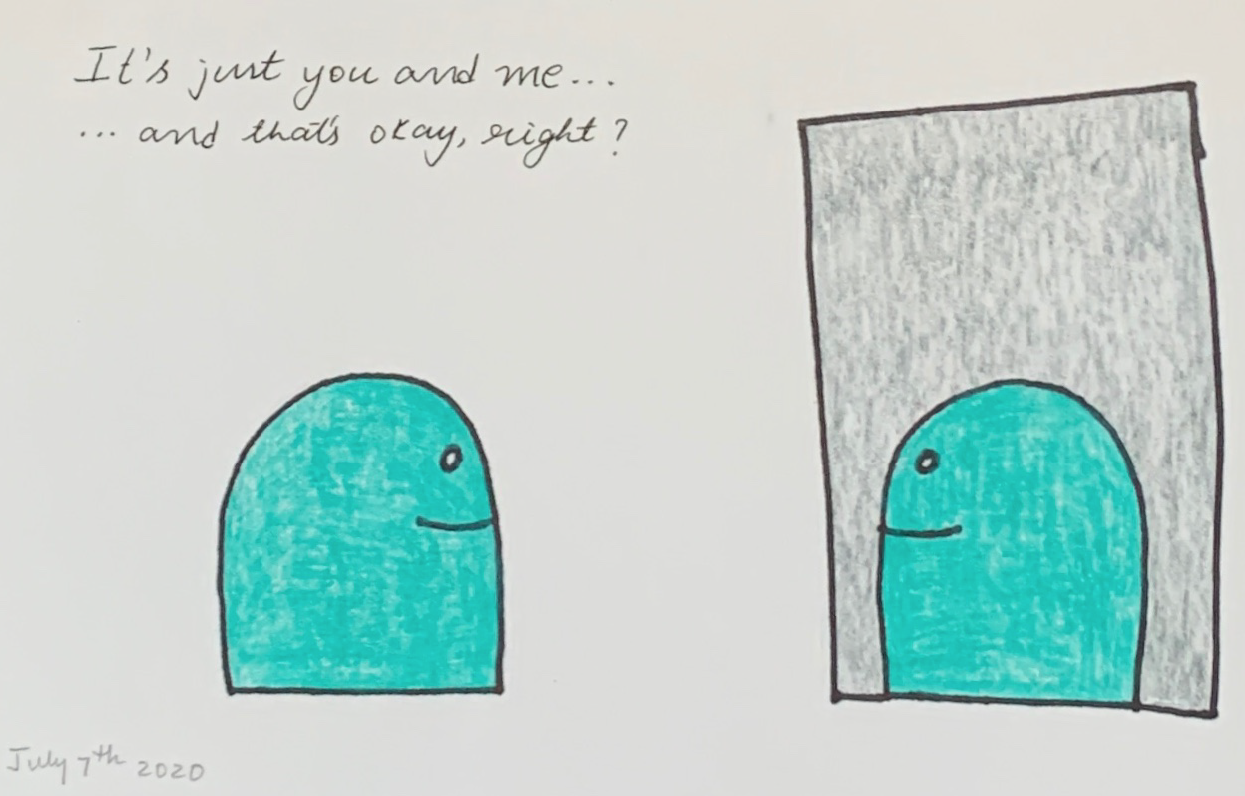 It's just you and me...
... and that's okay, right?
July 7th 2020